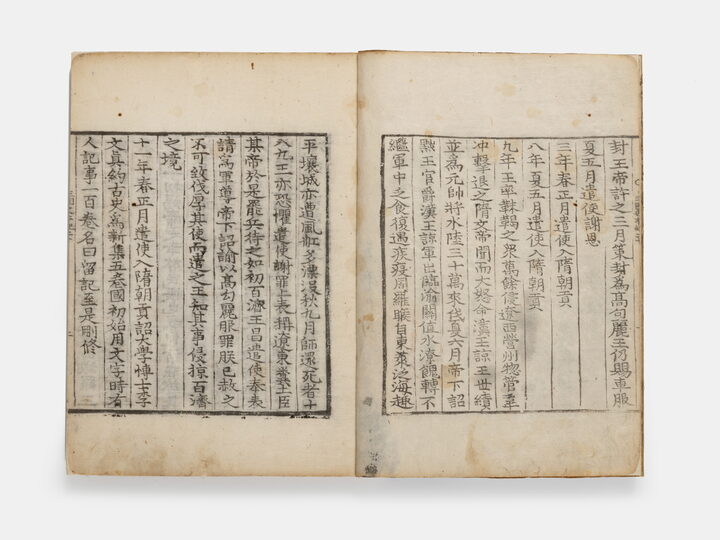 封王帝許之三月策封爲髙句麗王仍賜車服
夏五月遣使謝恩
三年春正月遣使入隋朝貢
八年夏五月遣使入隋朝貢
九年王率靺鞨之衆萬餘侵遼西營州摠管韋
冲擊退之隋文帝聞而大怒命漢王諒王世績
並爲元帥將水陸三十萬來伐夏六月帝下詔
黜王官爵漢王諒軍出臨渝關值水潦餽轉不
繼軍中乏食復遇疾疫周羅睺自東萊泛海趣
平壤城亦遭風舡多漂沒秋九月師還死者十
八九王亦恐懼遣使謝罪上表稱遼東糞土臣
某帝於是罷兵待之如初百濟王昌遣使奉表
請爲軍導帝下詔諭以髙句麗服罪朕已赦之
不可致伐厚其使而遣之王知其事侵掠百濟
之境
十一年春正月遣使入隋朝貢詔大學博士李
文眞約古史爲新集五卷國初始用文字時有
人記事一百卷名曰留記至是刪修